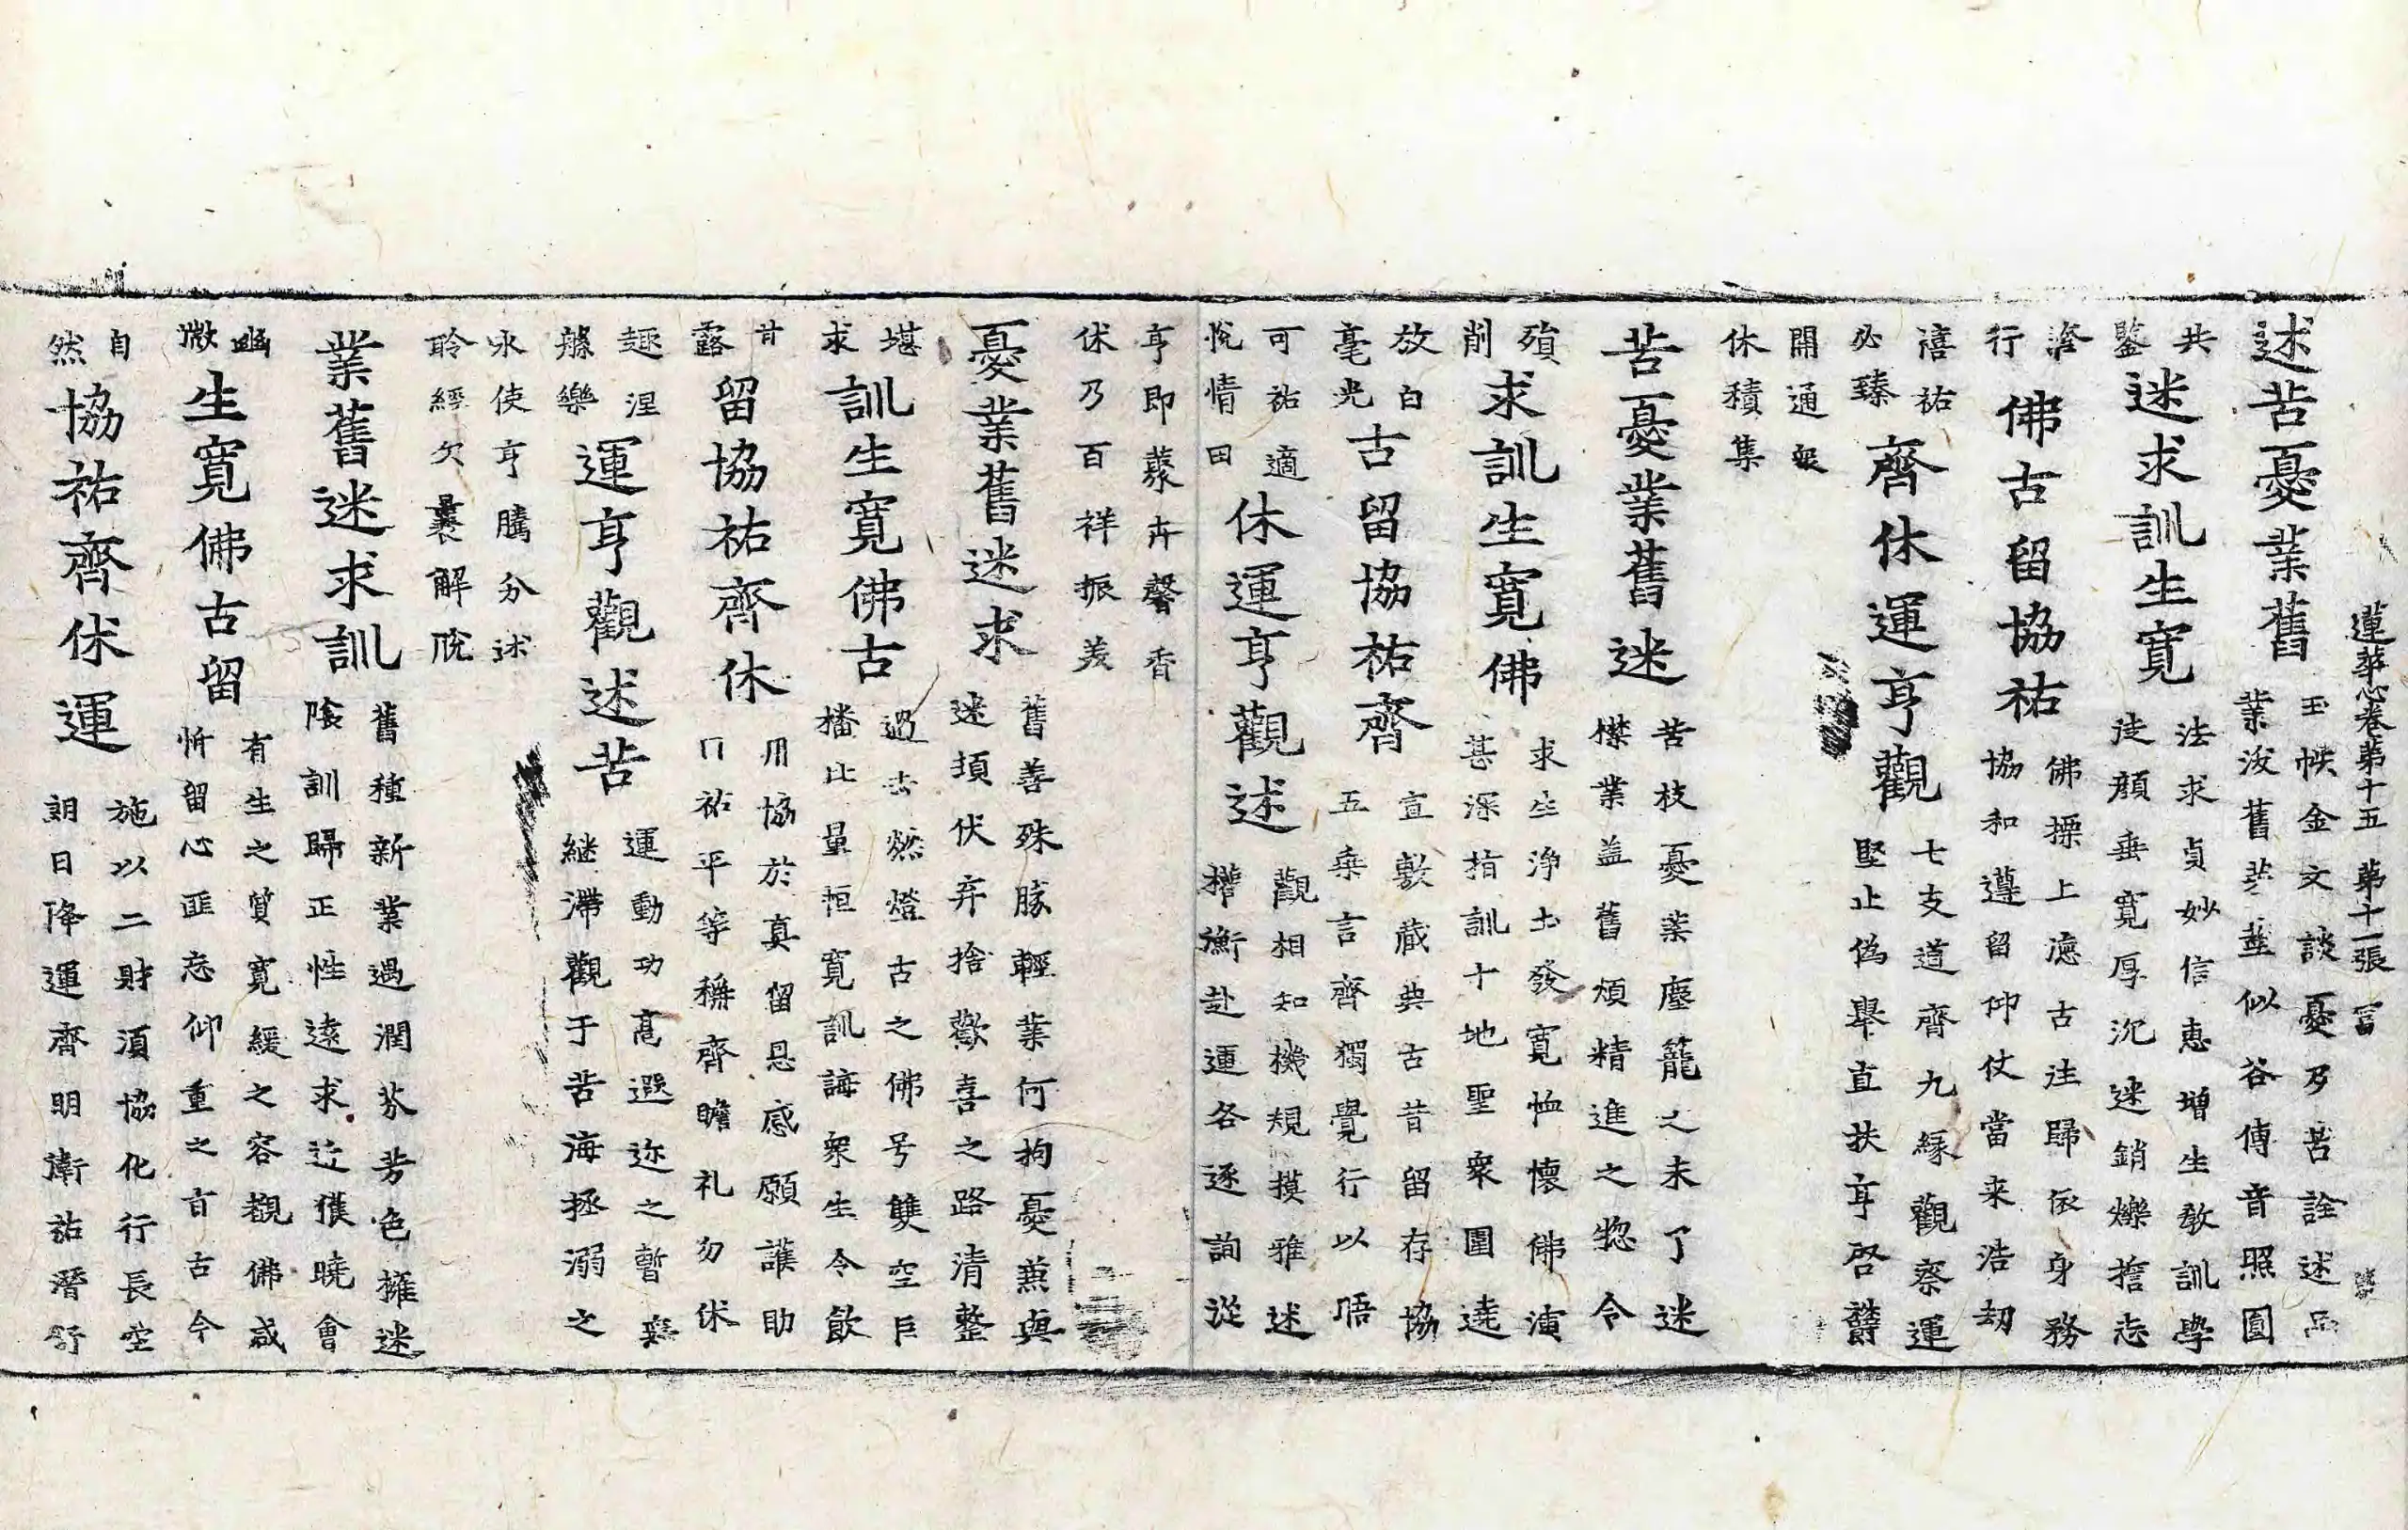 蓮華心卷第十五 第十一張 富
述苦憂業舊
玉帙金文談憂乃苦詮述
業沒舊並似谷傳音照圓
共
鑒
迷求訓生寬
法求貞妙信惠增生教訓學
徒顏垂寬厚沉迷銷爍擔志
洽
行
佛古留協祐
佛操上德古法歸依身務
協和遵留仰仗當来浩劫
禧祐
必臻
齊休運亨觀
七支道齊九緣觀察運
堅止偽舉直扶亨啓
開通眾
休積集
苦憂業舊迷
苦枝憂業塵籠之未了迷
襟業盖舊煩精進之惣令
殞
削
求訓生寬佛
求生淨土發寬恤懷佛演
甚深指訓十地聖衆圍遶
放白
毫光
古留協祐齊
宣敷蔵典古昔留存協
五乘言齊獨覺行以悟
可祐適
悅情田
休運亨觀述
觀相知機規摸雅述
權衡赴運各逐詢從
亨即蓺卉馨香
休乃百祥振美
憂業舊迷求
舊善殊勝輕業何拘憂兼與
迷須伏弃捨歡喜之路清整
堪
求
訓生寬佛古
過去燃燈古之佛号雙空巨
播比量恒寬訓誨衆生令飲
甘
露
留協祐齊休
用協於真留恳感願護助
祐平等稱齊瞻礼勿休
趣涅
槃樂
運亨觀述苦
運動功高遐迩之暫
継滯觀于苦海拯溺之
永使亨騰分述
聆經欠曩解脫
業舊迷求訓
舊種新業遇潤芬芳色擁迷
陰訓歸正性遠求近獲曉會
幽
微
生寬佛古留
有生之質寬緩之容覩佛咸
忻留心匪忘仰重之言古今
自
然
協祐齊休運
施以二財須協化行長空
朗日降運齊明衛祐潛舒